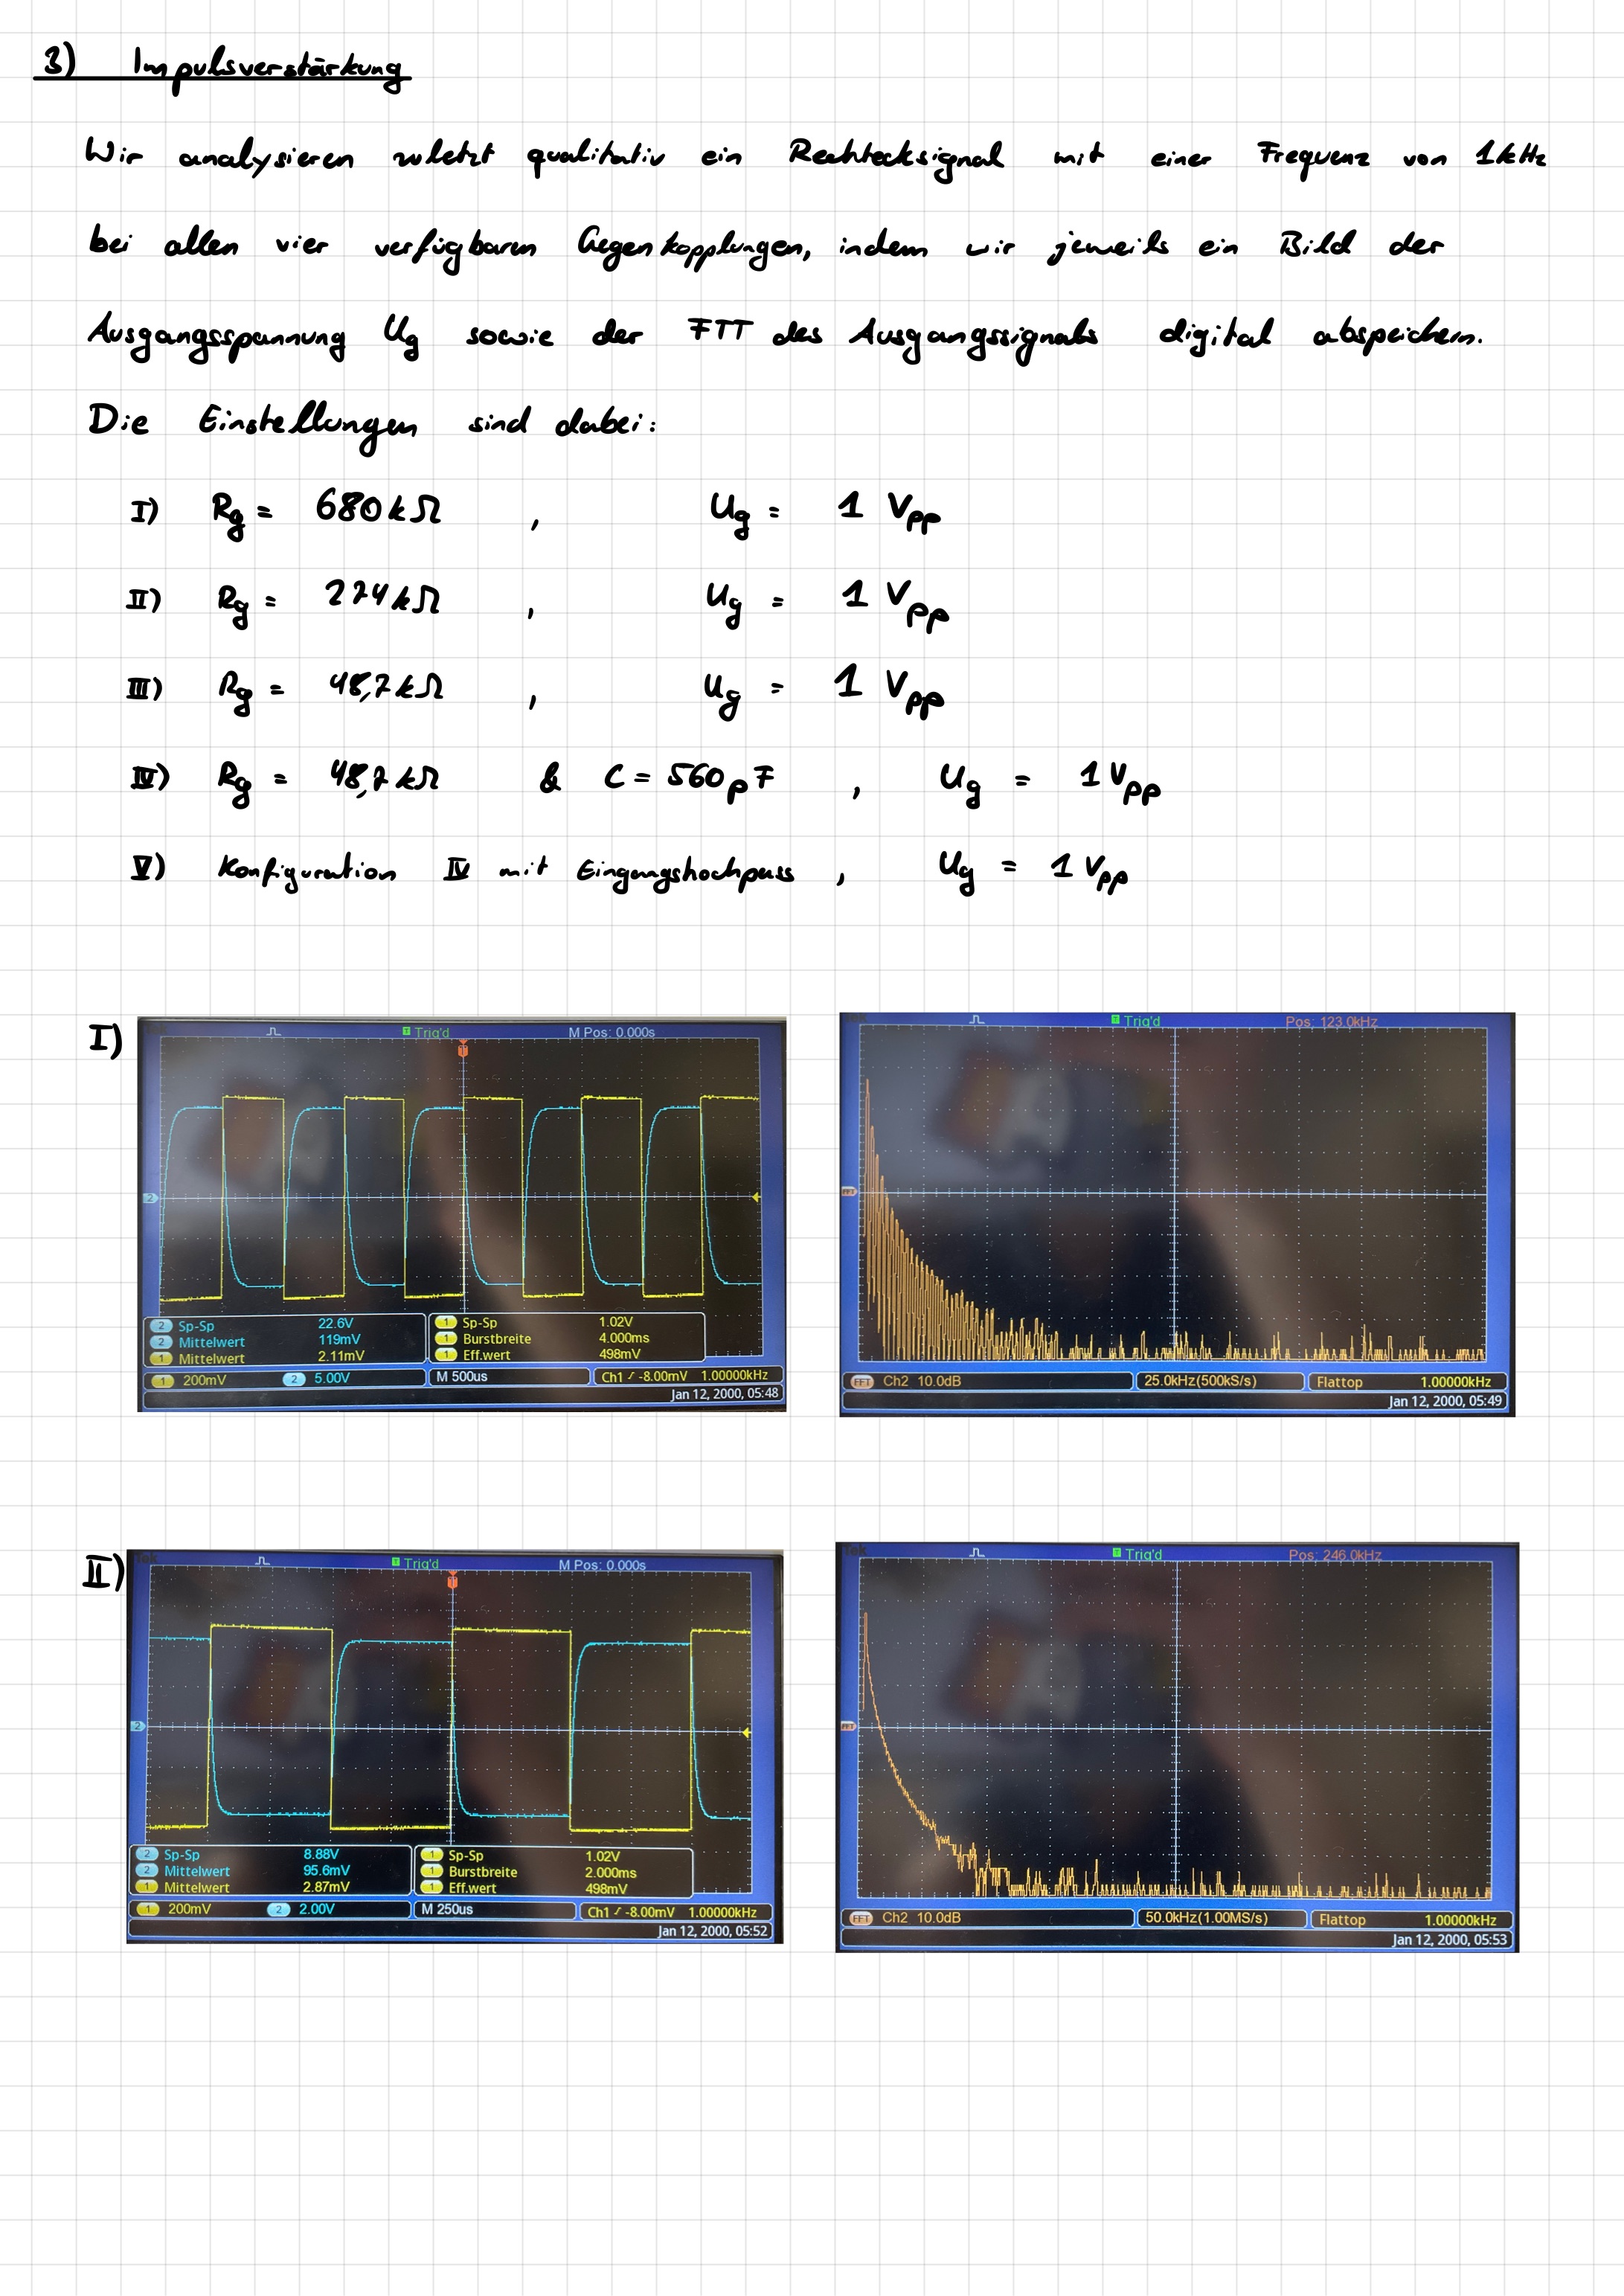 3) Impulsverstärkung
Wir analysieren zuletzt qualitativ ein Rechtecksignal mit einer Frequenz von 1kHz
bei allen vier verfügbaren Gegenkopplungen, indem wir jeweils ein Bild der
Ausgangsspannung Ug sowie der FTT des Ausgangssignals digital abspeichern.
Die Einstellungen sind dabei:
I) Rg = 680kΩ , Ug = 1 Vpp
II) Rg = 274kΩ , Ug = 1 Vpp
III) Rg = 48,7kΩ , Ug = 1 Vpp
IV) Rg = 48,7kΩ & C = 560pF , Ug = 1 Vpp
V) Konfiguration IV mit Eingangshochpass , Ug = 1 Vpp
I)
Trig'd M Pos: 0.000s
2
2 Sp-Sp 22.6V 1 Sp-Sp 1.02V
2 Mittelwert 119mV 1 Burstbreite 4.000ms
1 Mittelwert 2.11mV 1 Eff.wert 498mV
1 200mV 2 5.00V M 500us Ch1 -8.00mV 1.00000kHz
Jan 12, 2000, 05:48
Trig'd Pos: 123.0kHz
FFT
FFT Ch2 10.0dB 25.0kHz(500kS/s) Flattop 1.00000kHz
Jan 12, 2000, 05:49
II)
Tek Trig'd M Pos: 0.000s
2
2 Sp-Sp 8.88V 1 Sp-Sp 1.02V
2 Mittelwert 95.6mV 1 Burstbreite 2.000ms
1 Mittelwert 2.87mV 1 Eff.wert 498mV
1 200mV 2 2.00V M 250us Ch1 -8.00mV 1.00000kHz
Jan 12, 2000, 05:52
Tek Trig'd Pos: 246.0kHz
FFT
FFT Ch2 10.0dB 50.0kHz(1.00MS/s) Flattop 1.00000kHz
Jan 12, 2000, 05:53